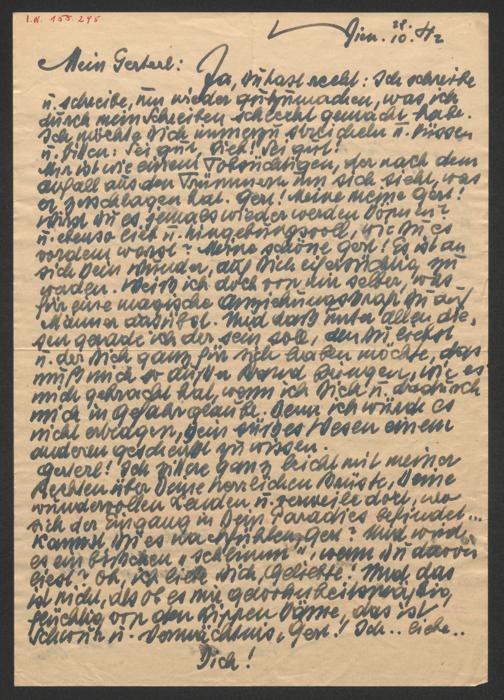 I.N. 155.245
Wien. 28. 10. 42
Mein Gerterl: Ja, Du hast recht: Ich schreibe
u. schreibe, um wieder gutzumachen, was ich
durch mein Schreiben schlecht gemacht habe.
Ich möchte Dich immerzu streicheln u. küssen
u. bitten: Sei gut, Dich! Sei gut!
Mir ist wie einem Tobsüchtigen, der nach dem
Anfall aus den Trümmern um sich sieht, was
er zerschlagen hat. Gert! Meine meine Gert!
Wirst Du es jemals wieder werden können?
u. ebenso lieb u. hingebungsvoll, wie Du es
vordem warst? Meine schöne Gert! Es ist an
sich kein Wunder, auf Dich eifersüchtig zu
werden. Weiß ich doch von mir selber, was
für eine magische Anziehungskraft Du auf
Männer ausübst. Und daß unter allen die-
sen gerade ich der sein soll, den Du liebst
u. der Dich ganz für sich haben möchte, das
muß mich so außer Rand bringen, wie es
mich gebracht hat, wenn ich Dich u. dadurch
mich in Gefahr glaubte. Denn ich würde es
nicht ertragen, Dein süßes Wesen einem
anderen geschenkt zu wissen.
Gerterl! Ich zittere ganz leicht mit meiner
Rechten über Deine herrlichen Brüste, Deine
wundervollen Lenden u. verweile dort, wo
sich der Eingang in Dein Paradies befindet...
Kannst Du es nachfühlen, Gert? Und wird
es ein bißchen "schlimm", wenn Du davon
liest? Oh, ich liebe Dich, Geliebte! Und das
ist nicht, als ob es mir gewohnheitsmäßig
flüchtig von den Lippen käme, das ist
Schwur u. Vermächtnis, Gert! Ich.. liebe..
Dich!